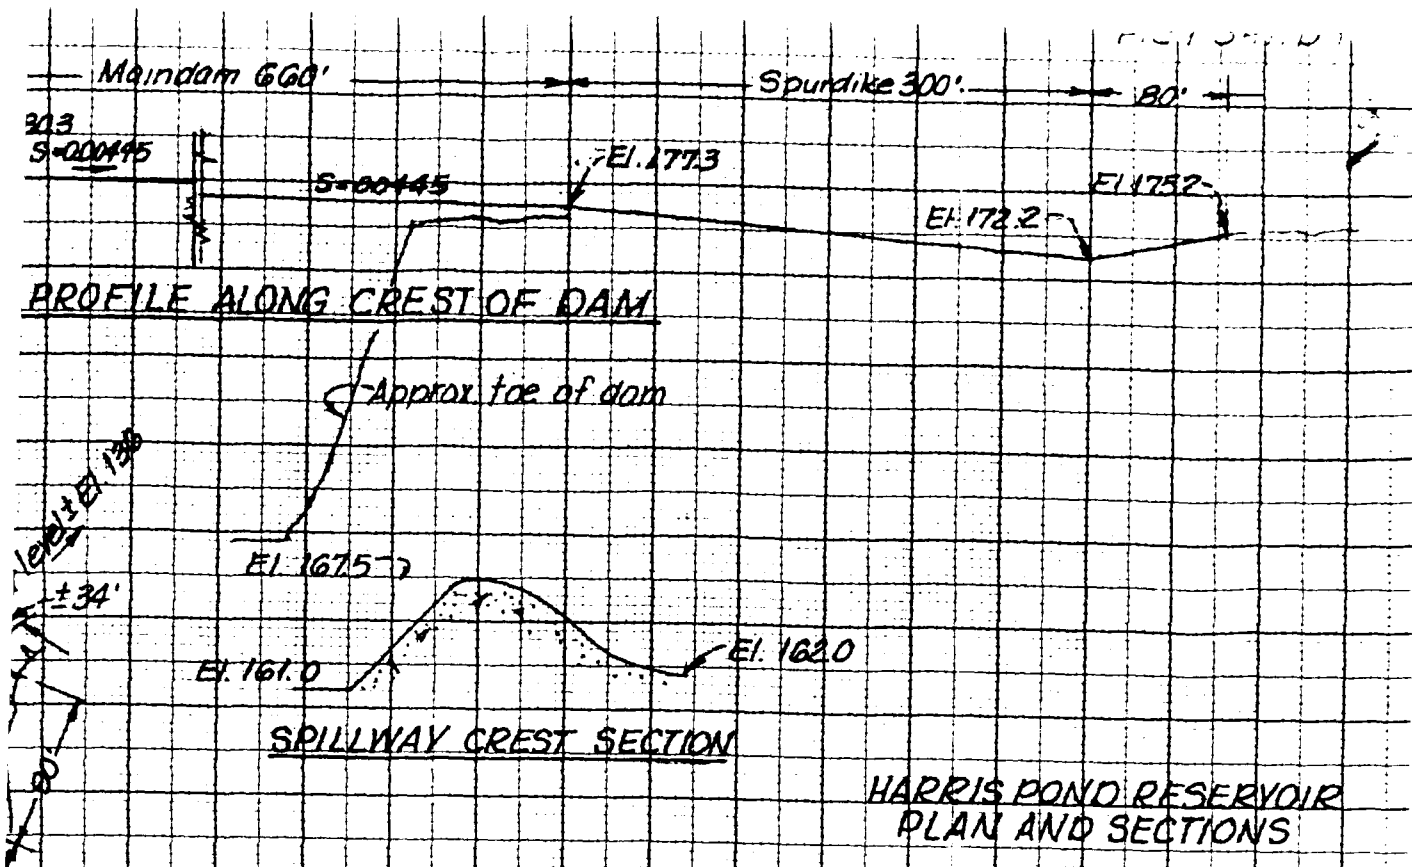 Maindam 660'
Spurdike 300'
80'
303
S=0.00445
El. 177.3
S=.00445
El 175.2
El. 172.2
PROFILE ALONG CREST OF DAM
Approx. toe of dam
level ± El. 138
El. 167.5
±34'
El. 161.0
El. 162.0
SPILLWAY CREST SECTION
80'
HARRIS POND RESERVOIR
PLAN AND SECTIONS